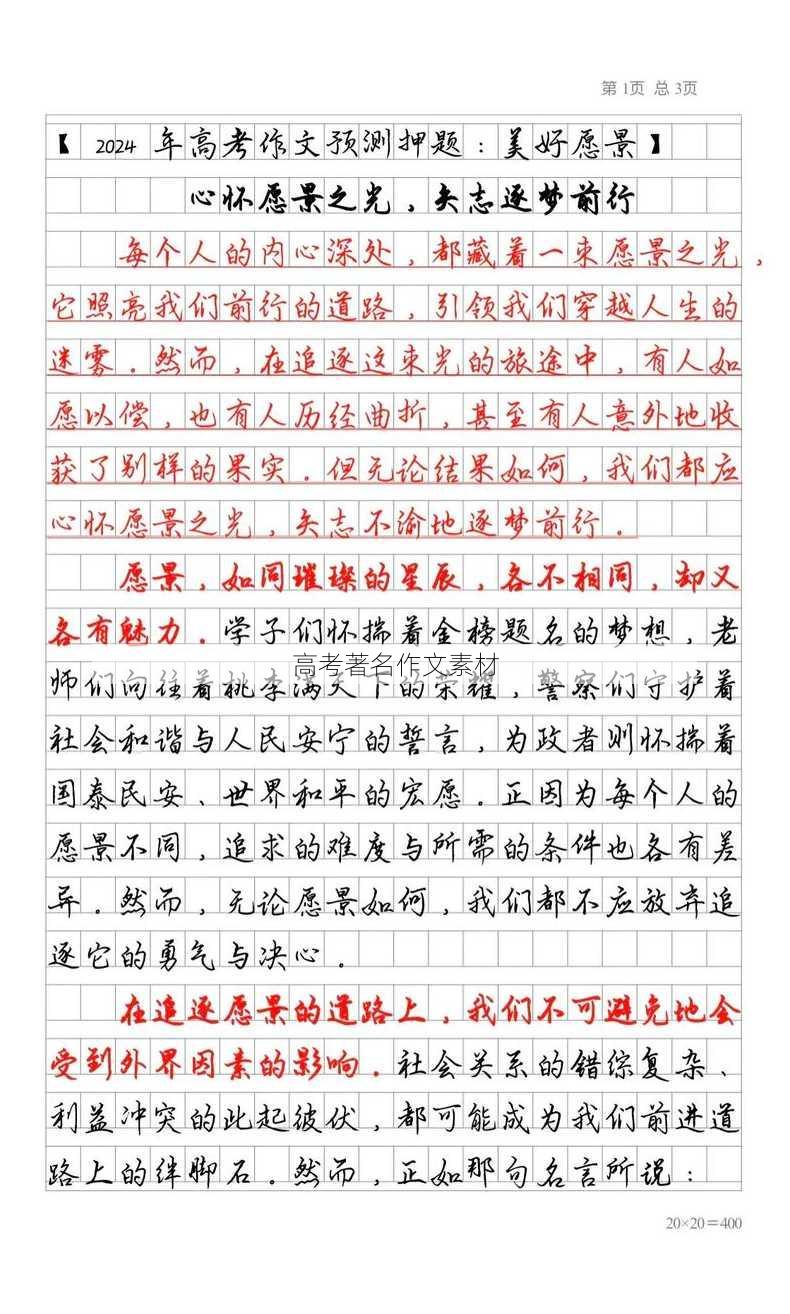 第 1页 总 3页
【 2024 年高考作文预测押题：美好愿景】
心怀愿景之光，矢志逐梦前行
每个人的内心深处，都藏着一束愿景之光，
它照亮我们前行的道路，引领我们穿越人生的
迷雾。然而，在追逐这束光的旅途中，有人如
愿以偿，也有人历经曲折，甚至有人意外地收
获了别样的果实。但无论结果如何，我们都应
心怀愿景之光，矢志不渝地逐梦前行。
愿景，如同璀璨的星辰，各不相同，却又
各有魅力。学子们怀揣着金榜题名的梦想，老
高考著名作文素材
师们向往着桃李满天下的荣耀，警察们守护着
社会和谐与人民安宁的誓言，为政者则怀揣着
国泰民安、世界和平的宏愿。正因为每个人的
愿景不同，追求的难度与所需的条件也各有差
异。然而，无论愿景如何，我们都不应放弃追
逐它的勇气与决心。
在追逐愿景的道路上，我们不可避免地会
受到外界因素的影响。社会关系的错综复杂、
利益冲突的此起彼伏，都可能成为我们前进道
路上的绊脚石。然而，正如那句名言所说：
20×20＝400